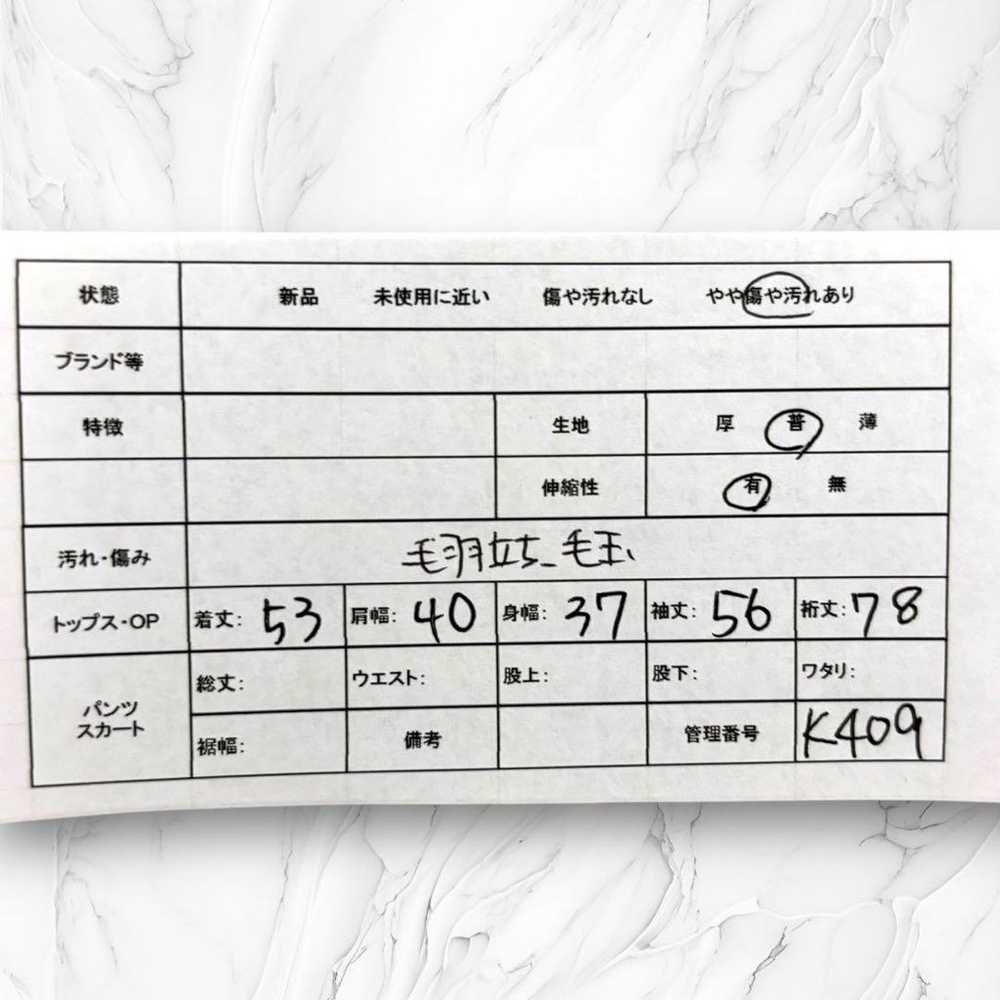 状態 新品 未使用に近い 傷や汚れなし やや傷や汚れあり
ブランド等
特徴 生地 厚 普 薄
伸縮性 有 無
汚れ・傷み 毛羽立ち、毛玉
トップス・OP 着丈: 53 肩幅: 40 身幅: 37 袖丈: 56 裄丈: 78
パンツ スカート 総丈: ウエスト: 股上: 股下: ワタリ:
裾幅: 備考 管理番号 K409